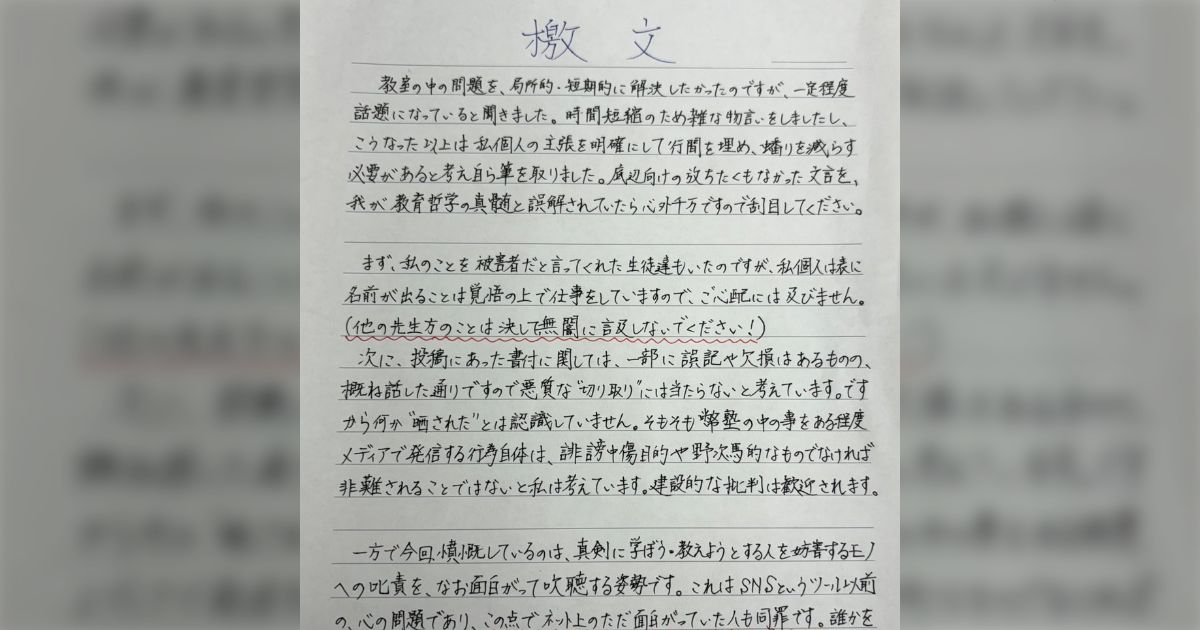 檄文
教室の中の問題を、局所的・短期的に解決したかったのですが、一定程度
話題になっていると聞きました。時間短縮のため雑な物言いをしましたし、
こうなった以上は私個人の主張を明確にして行間を埋め、蟠りを減らす
必要があると考え自ら筆を取りました。底辺向けの放ちたくもなかった文言を、
我が教育哲学の真髄と誤解されていたら心外千万ですので刮目してください。
まず、私のことを被害者だと言ってくれた生徒達もいたのですが、私個人は表に
名前が出ることは覚悟の上で仕事をしていますので、ご心配には及びません。
(他の先生方のことは決して無闇に言及しないでください！)
次に、投稿にあった書付に関しては、一部に誤記や欠損はあるものの、
概ね話した通りですので悪質な"切り取り"には当たらないと考えています。です
から何か"晒された"とは認識していません。そもそも弊塾の中の事をある程度
メディアで発信する行為自体は、誹謗中傷目的や野次馬的なものでなければ
非難されることではないと私は考えています。建設的な批判は歓迎されます。
一方で今回、憤慨しているのは、真剣に学ぼう・教えようとする人を妨害するモノ
への叱責を、なお面白がって吹聴する姿勢です。これはSNSというツール以前
の、心の問題であり、この点でネット上のただ面白がっていた人も同罪です。誰かを